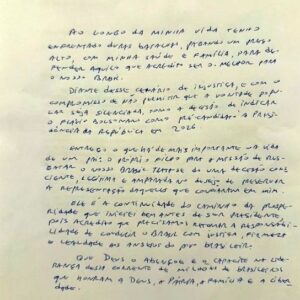 Ao longo da minha vida tenho
enfrentado duras batalhas, pagando um preço
alto, com minha saúde e família, para de-
fender aquilo que acredito ser o melhor para
o nosso Brasil.
Diante desse cenário de injustiça, e com o
compromisso de não permitir que a vontade popu-
lar seja silenciada, tomo a decisão de indicar
o Flávio Bolsonaro como pré-candidato à Presi-
dência da República em 2026.
Entrego o que há de mais importante na vida
de um pai: o próprio filho para a missão de res-
gatar o nosso Brasil. Trata-se de uma decisão cons-
ciente, legítima e amparada no desejo de preservar
a representação daqueles que confiaram em mim.
Ele é a continuidade do caminho da prosperi-
dade que iniciei bem antes de ser presidente,
pois acredito que precisamos retomar a responsabili-
dade de conduzir o Brasil com justiça, firmeza
e lealdade aos anseios do povo brasileiro.
Que Deus o abençoe e o capacite na lide-
rança dessa corrente de milhões de brasileiros
que honram a Deus, a Pátria, a família e a liber-
dade.